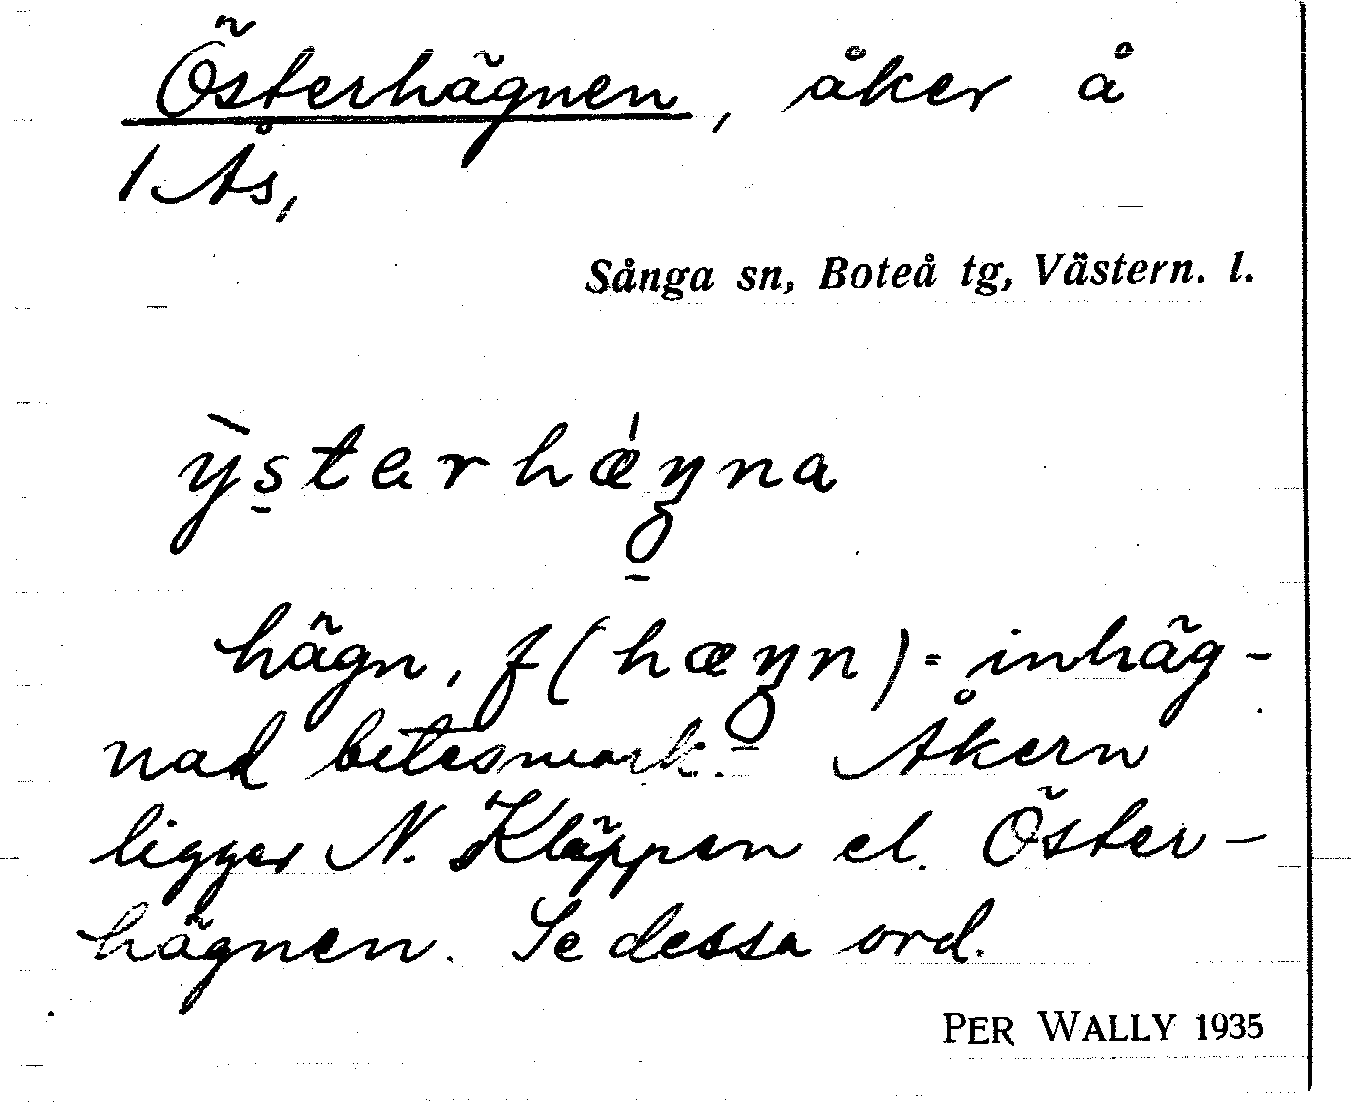 Österhägnen, åker å
1 Ås,
Sånga sn, Boteå tg, Västern. l.
ỳs̠terhǽŋna
hägn, f (hæŋn) = inhäg-
nad betesmark. Åkern
ligger N. Kläppen el. Öster-
hägnen. Se dessa ord.
PER WALLY 1935